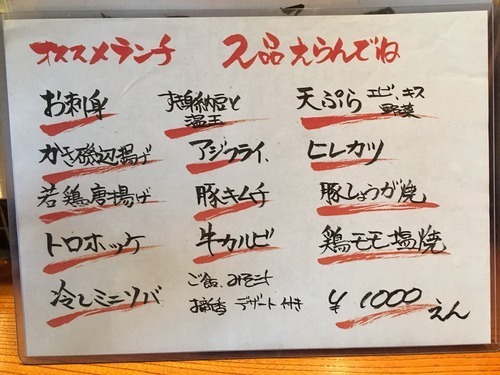 オススメランチ 2品えらんでね
お刺身 すき身納豆と温玉 天ぷら エビ、キス 野菜
かき磯辺揚げ アジフライ、 ヒレカツ
若鶏唐揚げ 豚キムチ 豚しょうが焼
トロホッケ 牛カルビ 鶏モモ塩焼
冷しミニソバ ご飯、みそ汁 お新香 デザート付き ¥1000えん